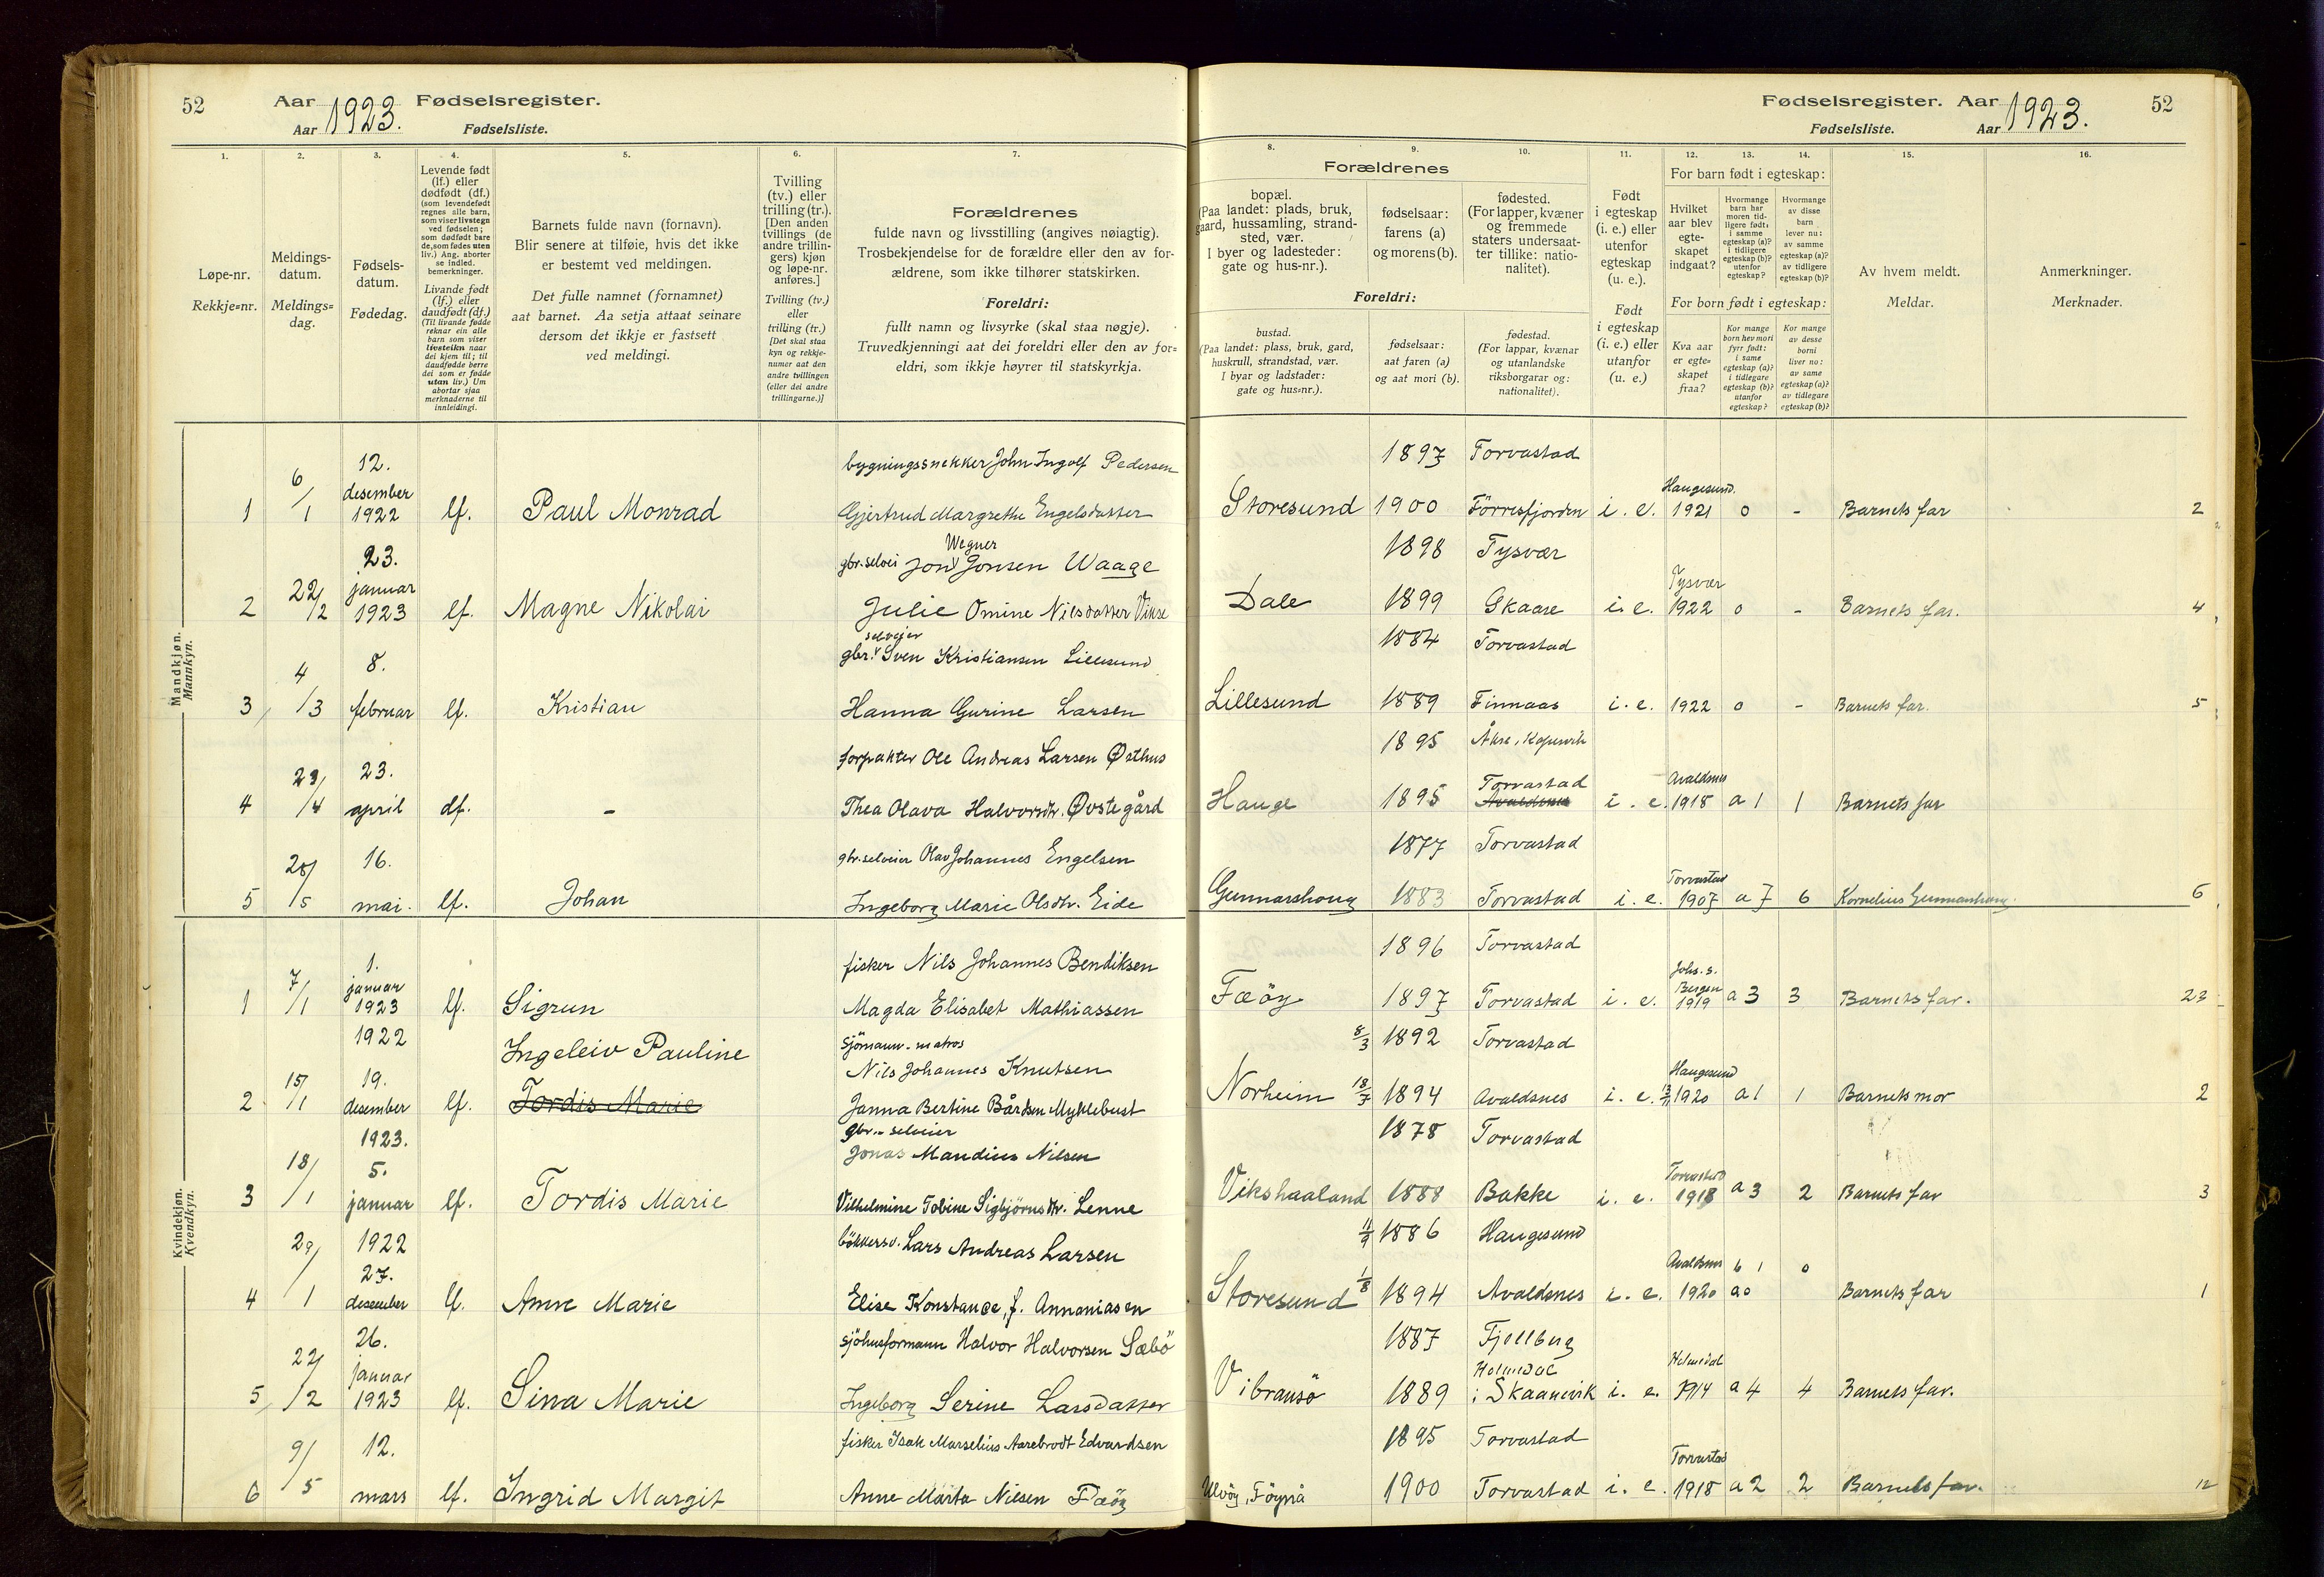 52 Aar 1923. Fødselsregister.
Aar Fødselsliste.
Fødselsregister. Aar 1923. 52
Fødselsliste. Aar
1. 2. 3. 4. 5. 6. 7.
Løpe-nr.
Rekkje=nr.
Meldings-
datum.
Meldings=
dag.
Fødsels-
datum.
Fødedag.
Levende født
(lf.) eller
dødfødt (df.)
(som levendefødt
regnes alle barn,
som viser livstegn
ved fødselen;
som dødfødt bare
de, som fødes uten
liv.) Ang. aborter
se indled.
bemerkninger.
Livande født
(lf.) eller
daudfødt (df.)
(Til livande fødde
reknar ein alle
barn som viser
livsteikn naar
dei kjem til; til
daudfødde berre
dei som er fødde
utan liv.) Um
abortar sjaa
merknaderne til
innleidingi.
Barnets fulde navn (fornavn).
Blir senere at tilføie, hvis det ikke
er bestemt ved meldingen.
Det fulle namnet (fornamnet)
aat barnet. Aa setja attaat seinare
dersom det ikkje er fastsett
ved meldingi.
Tvilling
(tv.) eller
trilling (tr.).
[Den anden
tvillings (de
andre trillin-
gers) kjøn
og løpe-nr.
anføres.]
Tvilling (tv.)
eller
trilling (tr.)
[Det skal staa
kyn og rekkje-
numer aat den
andre tvillingen
(eller dei andre
trillingarne.)]
Forældrenes
fulde navn og livsstilling (angives nøiagtig).
Trosbekjendelse for de forældre eller den av for-
ældrene, som ikke tilhører statskirken.
Foreldri:
fullt namn og livsyrke (skal staa nøgje).
Truvedkjenningi aat dei foreldri eller den av for=
eldri, som ikkje høyrer til statskyrkja.
8. 9. 10. 11. 12. 13. 14. 15. 16.
Forældrenes
bopæl.
(Paa landet: plads, bruk,
gaard, hussamling, strand-
sted, vær.
I byer og ladesteder:
gate og hus-nr.).
fødselsaar:
farens (a)
og morens (b).
fødested.
(For lapper, kvæner
og fremmede
staters undersaat-
ter tillike: natio-
nalitet).
Foreldri:
bustad.
(Paa landet: plass, bruk, gard,
huskrull, strandstad, vær.
I byar og ladstader:
gate og hus=nr.).
fødselsaar:
aat faren (a)
og aat mori (b).
fødestad.
(For lappar, kvænar
og utanlandske
riksborgarar og:
nationalitet).
Født
i egteskap
(i. e.) eller
utenfor
egteskap
(u. e.).
Født
i egteskap
(i. e.) eller
utanfor
(u. e.)
For barn født i egteskap:
Hvilket
aar blev
egte-
skapet
indgaat?
Hvormange
barn har
moren tid-
ligere født:
i samme
egteskap (a)?
i tidligere
egteskap (b)?
utenfor
egteskap?
Hvormange
av disse
barn
lever nu:
av samme
egteskap (a)?
av tidligere
egteskap (b)?
For born født i egteskap:
Kva aar
er egte=
skapet
fraa?
Kor mange
born hev mori
fyrr født:
i same
egteskap (a)?
i tidlegare
egteskap (b)?
utanfor
egteskap?
Kor mange
av desse
borni
liver no:
av same
egteskap (a)?
av tidlegare
egteskap (b)?
Av hvem meldt.
Meldar.
Anmerkninger.
Merknader.
Mandkjøn.
Mannkyn.
12. bygningssnekker John Ingolf Pedersen 1897 Torvastad
1 6/1 desember 1922 lf. Paul Monrad Gjertrud Margrethe Engelsdatter Storesund 1900 Förresfjorden i. e. Haugesund. 1921 0 - Barnets far 2
23. gbr. selvei Jon Wegner Jonsen Waage 1898 Tysvær
2 22/2 januar 1923 lf. Magne Nikolai Julie Omine Nilsdatter Vikse Dale 1899 Skaare i. e. Tysvær 1922 0 - Barnets far. 4
8. gbr. selveier Sven Kristiansen Lillesund 1884 Torvastad
3 4/3 februar lf. Kristian Hanna Gurine Larsen Lillesund 1889 Finnaas i. e. 1922 0 - Barnets far. 5
23. forpakter Ole Andreas Larsen Østhus 1895 Åkre, Kopervik
4 23/4 april df. - Thea Olava Halvorsdtr. Øvstegård Hauge 1895 Torvastad Avaldsnes i. e. Avaldsnes 1918 a 1 1 Barnets far
16. gbr. selveier Olav Johannes Engelsen 1877 Torvastad
5 28/5 mai. lf. Johan Ingeborg Marie Olsdtr. Eide Gunnarshoug 1883 Torvastad i. e. Torvastad 1907 a 7 6 Kornelius Gunnarshaug. 6
Kvindekjøn.
Kvendkyn.
1. fisker Nils Johannes Bendiksen 1896 Torvastad
1 7/1 januar 1923 lf. Sigrun Magda Elisabet Mathiassen Fæöy 1897 Torvastad i. e. Johs. s. Bergen 1919 a 3 3 Barnets far. 23
1922 Ingeleiv Pauline sjömann - matros Nils Johannes Knutsen 8/3 1892 Torvastad
2 15/1 19. desember lf. Tordis Marie Janna Bertine Bårdsen Myklebust Norheim 18/7 1894 Avaldsnes i. e. 13/11 Haugesund 1920 a 1 1 Barnets mor 2
1923. 5. gbr. selveier Jonas Mandius Nilsen 1878 Torvastad
3 18/1 januar lf. Tordis Marie Vilhelmine Tobine Sigbjörnsdtr. Lenne Vikshaaland 1888 Bakke i. e. Torvastad 1918 a 3 2 Barnets far 3
1922 27. bökkersv. Lars Andreas Larsen 11/9 1886 Haugesund
4 29/1 desember lf. Anne Marie Elise Konstance, f. Annaniasen Storesund 1/8 1894 Avaldsnes i. e. Avaldsnes 1920 b 1 0 a 0 Barnets far 1
26. sjöhusformann Halvor Halvorsen Sæbö 1887 Fjellberg
5 22/2 januar 1923 lf. Sina Marie Ingeborg Serine Larsdatter Vibransö 1889 Holmedal i Skaanevik i. e. Holmedal 1914 a 4 4 Barnets far.
12. fisker Isak Marselius Aarebrodt Edvardsen 1895 Torvastad
6 9/5 mars lf. Ingrid Margit Anne Marta Nilsen Fæöy Ulvöy, Föynå 1900 Torvastad i. e. Torvastad 1918 a 2 2 Barnets far. 12